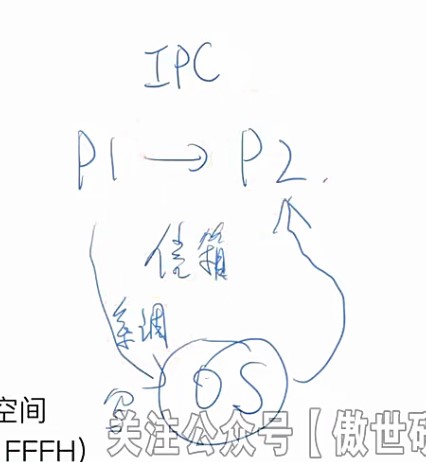 IPC
P1 → P2.
信箱
系调
OS
空间
FFFH)
关注公众号【傲世研